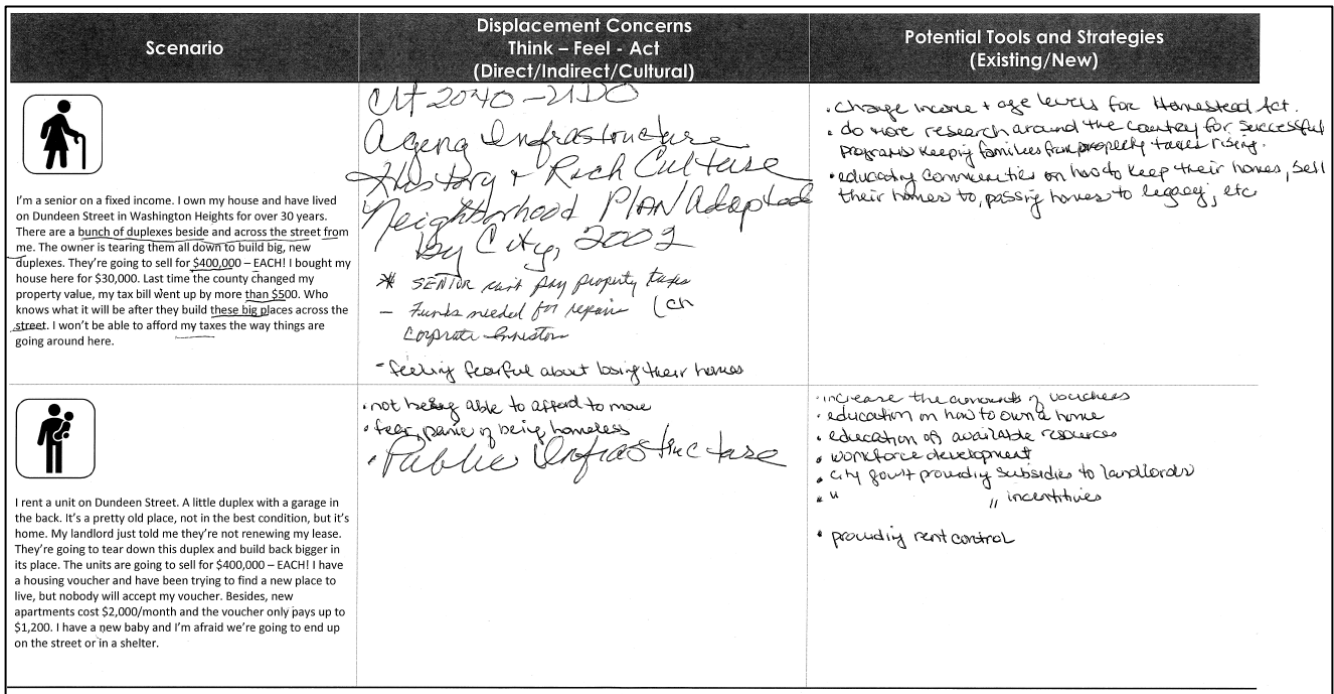 Scenario
Displacement Concerns
Think – Feel - Act
(Direct/Indirect/Cultural)
Potential Tools and Strategies
(Existing/New)
I'm a senior on a fixed income. I own my house and have lived
on Dundeen Street in Washington Heights for over 30 years.
There are a bunch of duplexes beside and across the street from
me. The owner is tearing them all down to build big, new
duplexes. They're going to sell for $400,000 – EACH! I bought my
house here for $30,000. Last time the county changed my
property value, my tax bill went up by more than $500. Who
knows what it will be after they build these big places across the
street. I won't be able to afford my taxes the way things are
going around here.
2040 - UDO
Ageing Infrastructure
History + Rich Culture
Neighborhood PLAN Adopted
by City, 2002
* SENIOR must pay property taxes
- Funds needed for repairs
Corporate Investors
- feeling fearful about losing their homes
• change income + age levels for Homestead Act.
• do more research around the country for successful
programs keeping families from property taxes rising.
• educating communities on how to keep their homes, sell
their homes to, passing homes to legacy, etc
I rent a unit on Dundeen Street. A little duplex with a garage in
the back. It's a pretty old place, not in the best condition, but it's
home. My landlord just told me they're not renewing my lease.
They're going to tear down this duplex and build back bigger in
its place. The units are going to sell for $400,000 – EACH! I have
a housing voucher and have been trying to find a new place to
live, but nobody will accept my voucher. Besides, new
apartments cost $2,000/month and the voucher only pays up to
$1,200. I have a new baby and I'm afraid we're going to end up
on the street or in a shelter.
• not being able to afford to move
• fear, panic of being homeless
• Public Infrastructure
• increase the amounts of vouchers
• education on how to own a home
• education of available resources
• workforce development
• city gov't providing subsidies to landlords
• " " incentives
• providing rent control